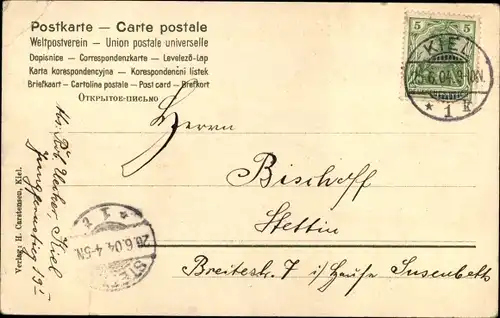 Postkarte — Carte postale
Weltpostverein — Union postale universelle
Dopisnice — Correspondenzkarte — Levelező-Lap
Karta korespondencyjna — Korespondenční listek
Briefkaart — Cartolina postale — Post card — Brefkort
ОТКРЫТОЕ-ПИСЬМО
5 5
KIEL
6.04.9-10N.
* 1 k
Herrn
Bischoff
Stettin
Breitestr. 7 i/ Hause Susenbeth
Kiel
Jungfernstieg 19
* 1 t
20.6.04 4-5N
Verlag H. Carstensen, Kiel.